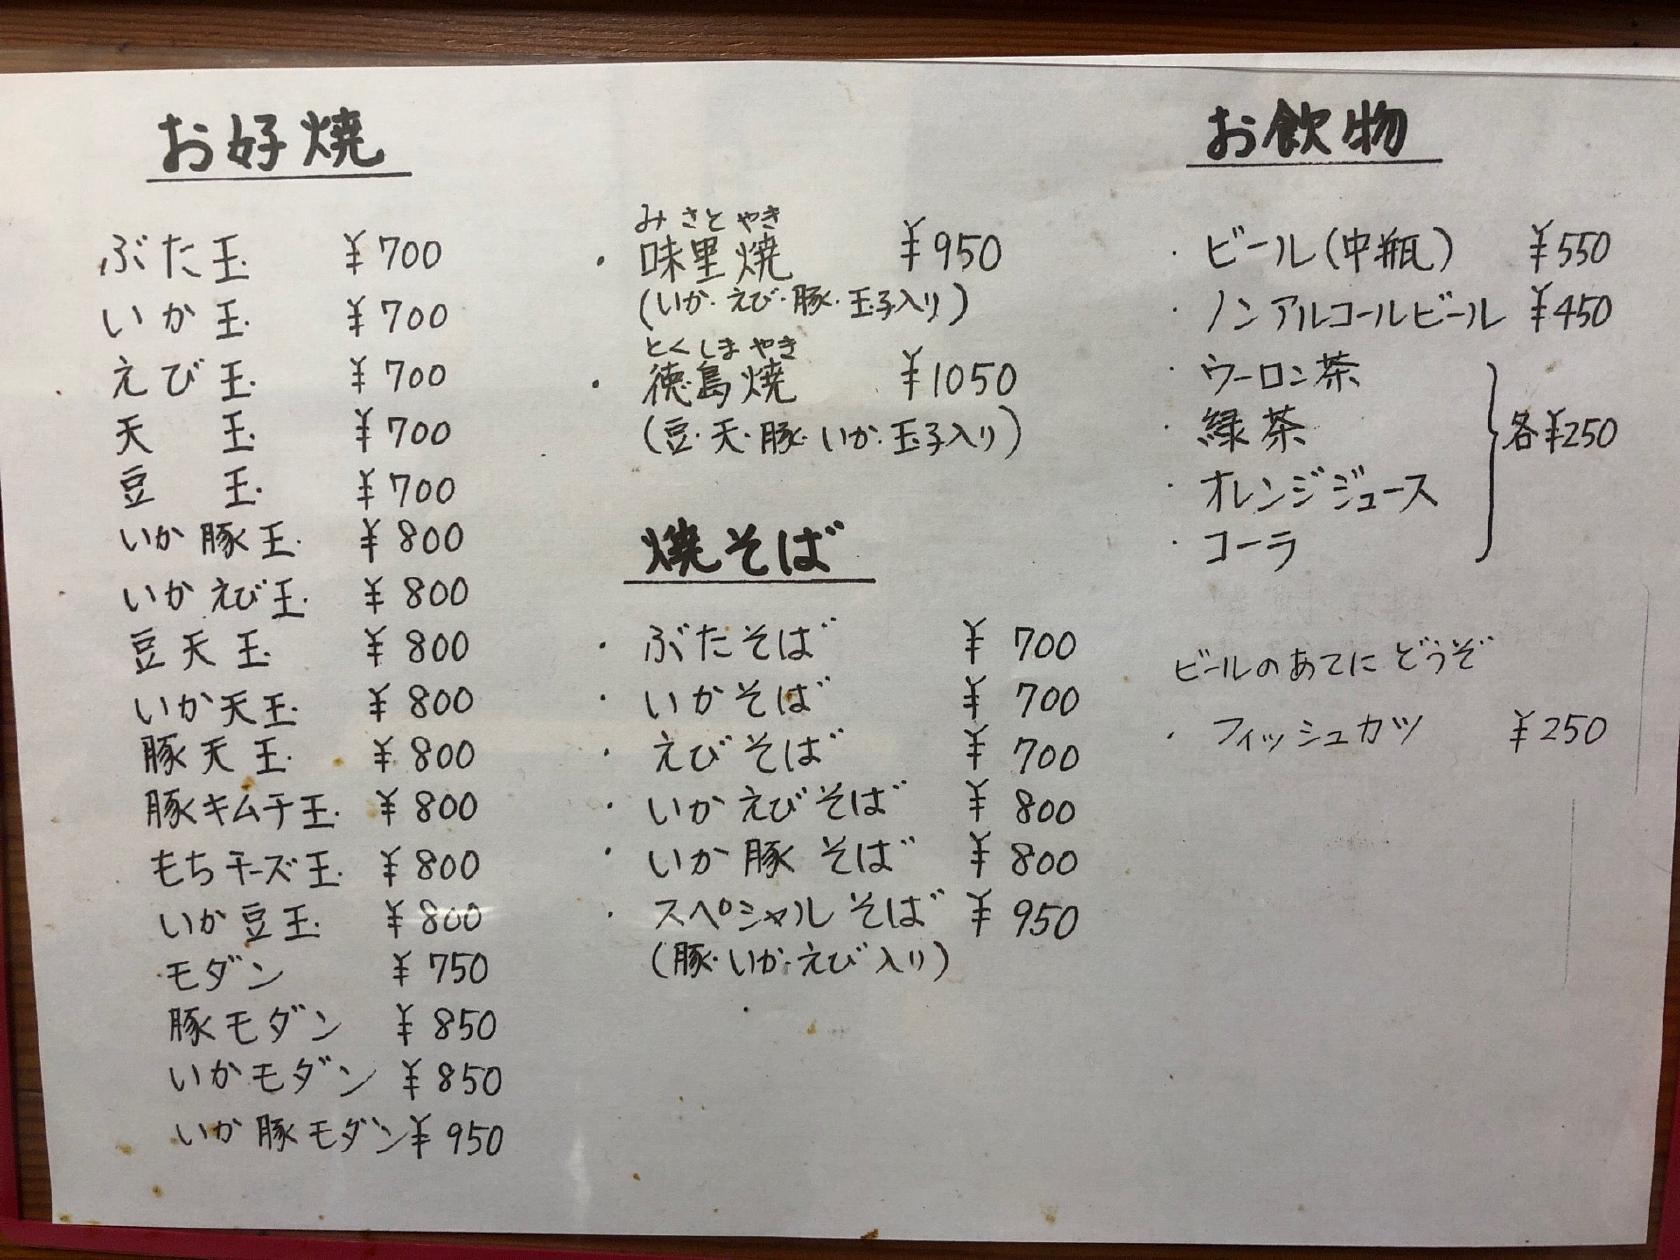 お好焼
ぶた玉 ¥700
いか玉 ¥700
えび玉 ¥700
天玉 ¥700
豆玉 ¥700
いか豚玉 ¥800
いかえび玉 ¥800
豆天玉 ¥800
いか天玉 ¥800
豚天玉 ¥800
豚キムチ玉 ¥800
もちチーズ玉 ¥800
いか豆玉 ¥800
モダン ¥750
豚モダン ¥850
いかモダン ¥850
いか豚モダン ¥950
みさとやき
・味里焼 ¥950
(いか・えび・豚・玉子入り)
とくしまやき
・徳島焼 ¥1050
(豆・天・豚・いか・玉子入り)
焼そば
・ぶたそば ¥700
・いかそば ¥700
・えびそば ¥700
・いかえびそば ¥800
・いか豚そば ¥800
・スペシャルそば ¥950
(豚・いか・えび入り)
お飲物
・ビール(中瓶) ¥550
・ノンアルコールビール ¥450
・ウーロン茶
・緑茶
・オレンジジュース
・コーラ
各¥250
ビールのあてにどうぞ
・フィッシュカツ ¥250